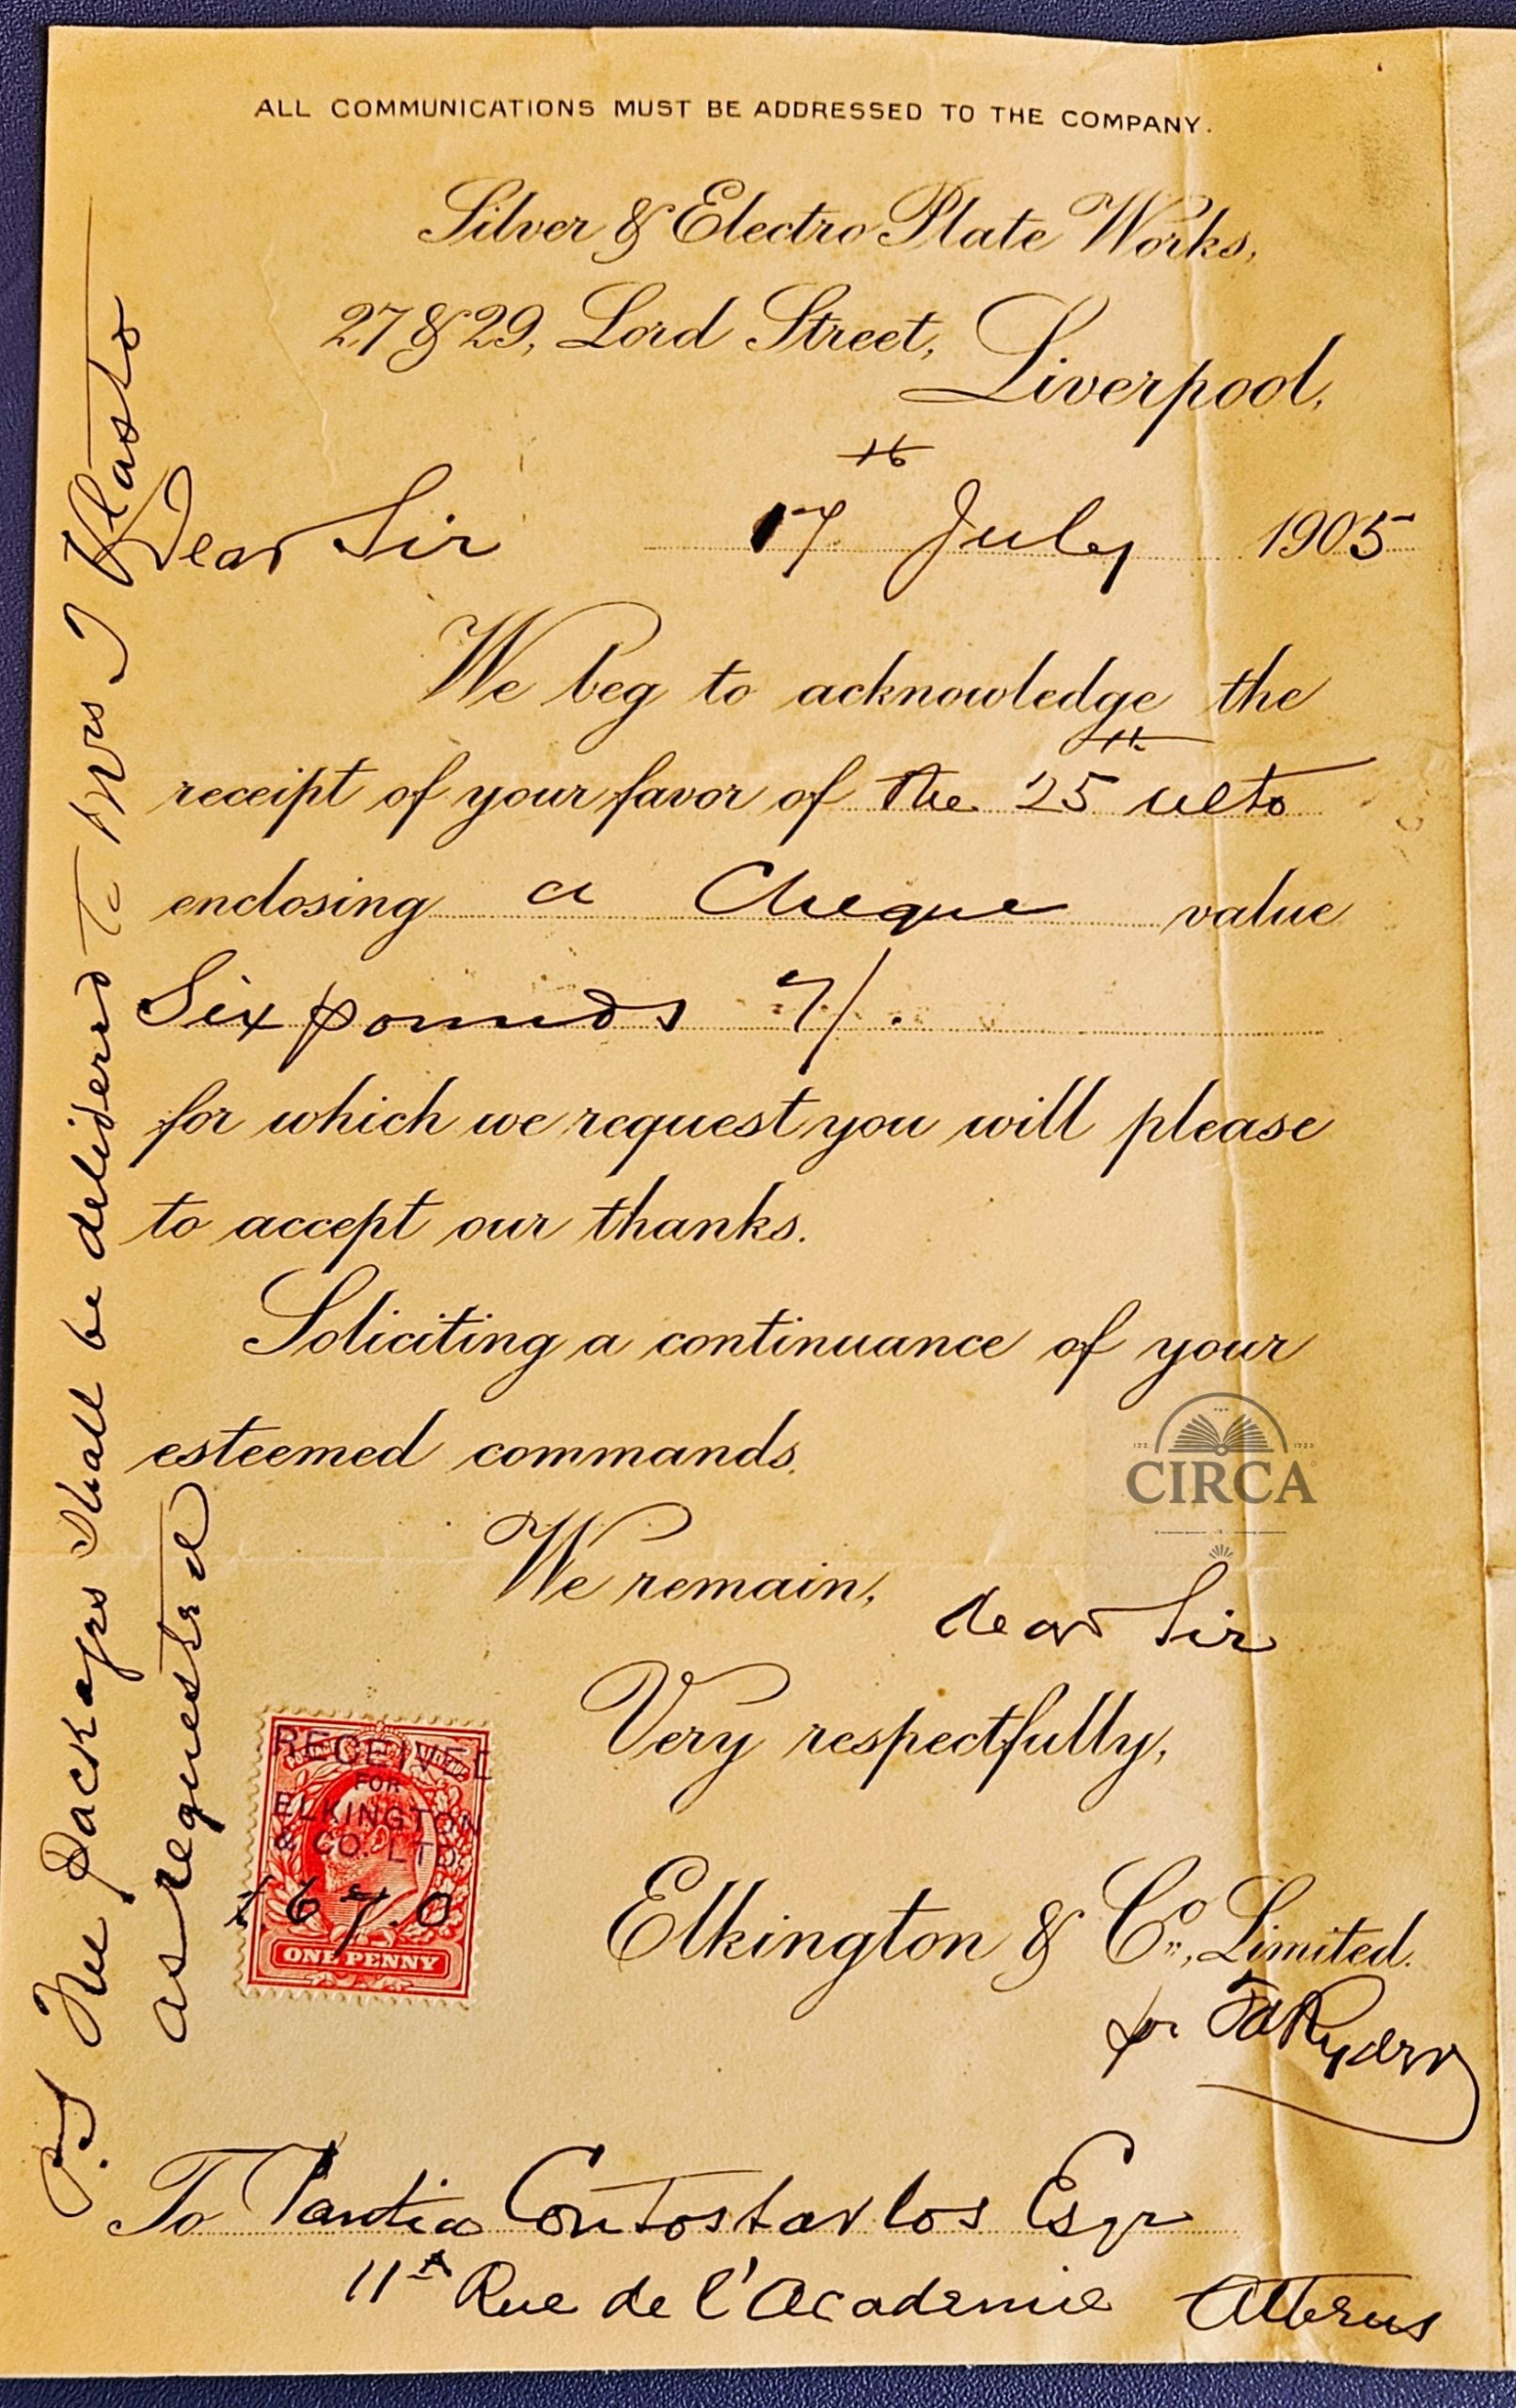 ALL COMMUNICATIONS MUST BE ADDRESSED TO THE COMPANY.
Silver & Electro Plate Works,
27 & 29, Lord Street,
Liverpool,
Dear Sir 17th July 1905
We beg to acknowledge the
receipt of your favor of the 25th ulto
enclosing a Cheque value
Six pounds 7/.
for which we request you will please
to accept our thanks.
Soliciting a continuance of your
esteemed commands.
We remain, dear Sir
Very respectfully,
Elkington & Co., Limited.
for Ryder
RECEIVED
FOR
ELKINGTON
& CO. LTD.
£6.7.0
ONE PENNY
To Pantia Contostavlos Esqr
11A Rue de l'Academie Athens
P.S The packages shall be delivered to Mrs J Vlasto
as requested
CIRCA